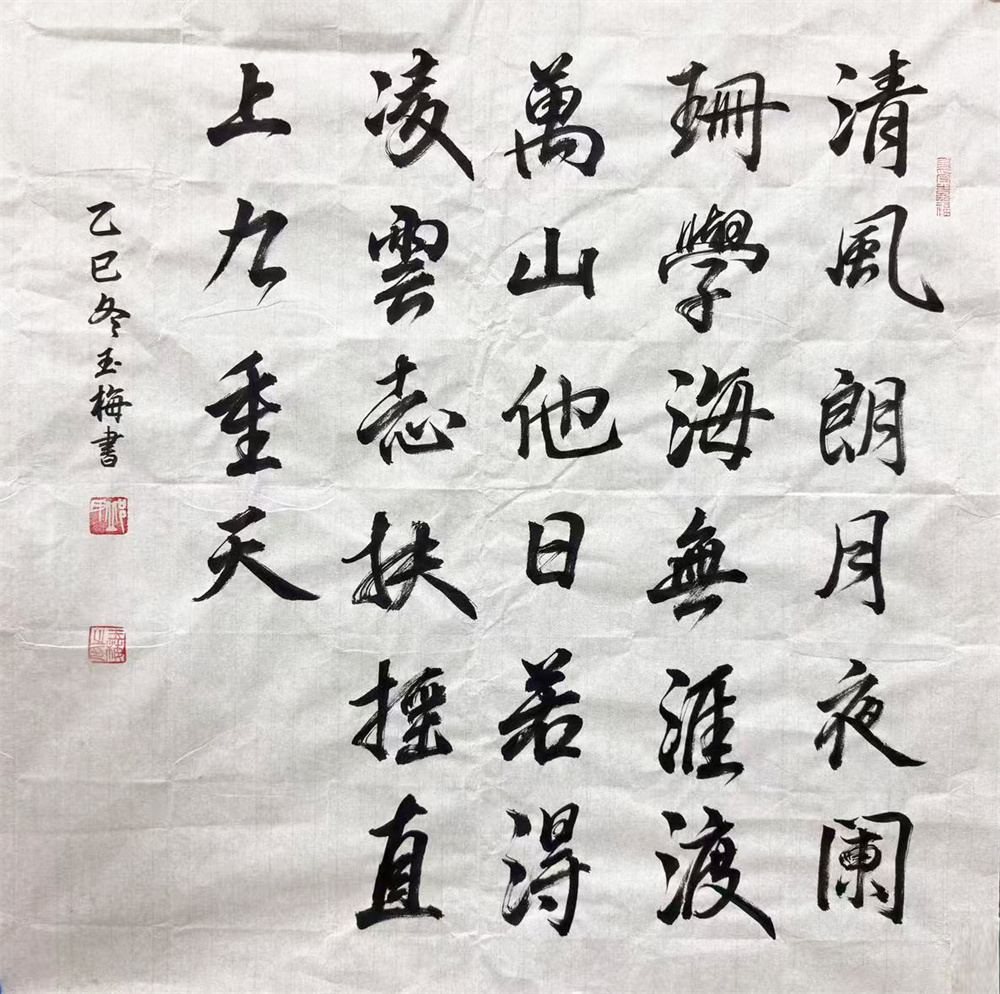 清風朗月夜闌
珊學海無涯渡
萬山他日若得
凌雲志扶搖直
上九重天
乙巳冬玉梅書